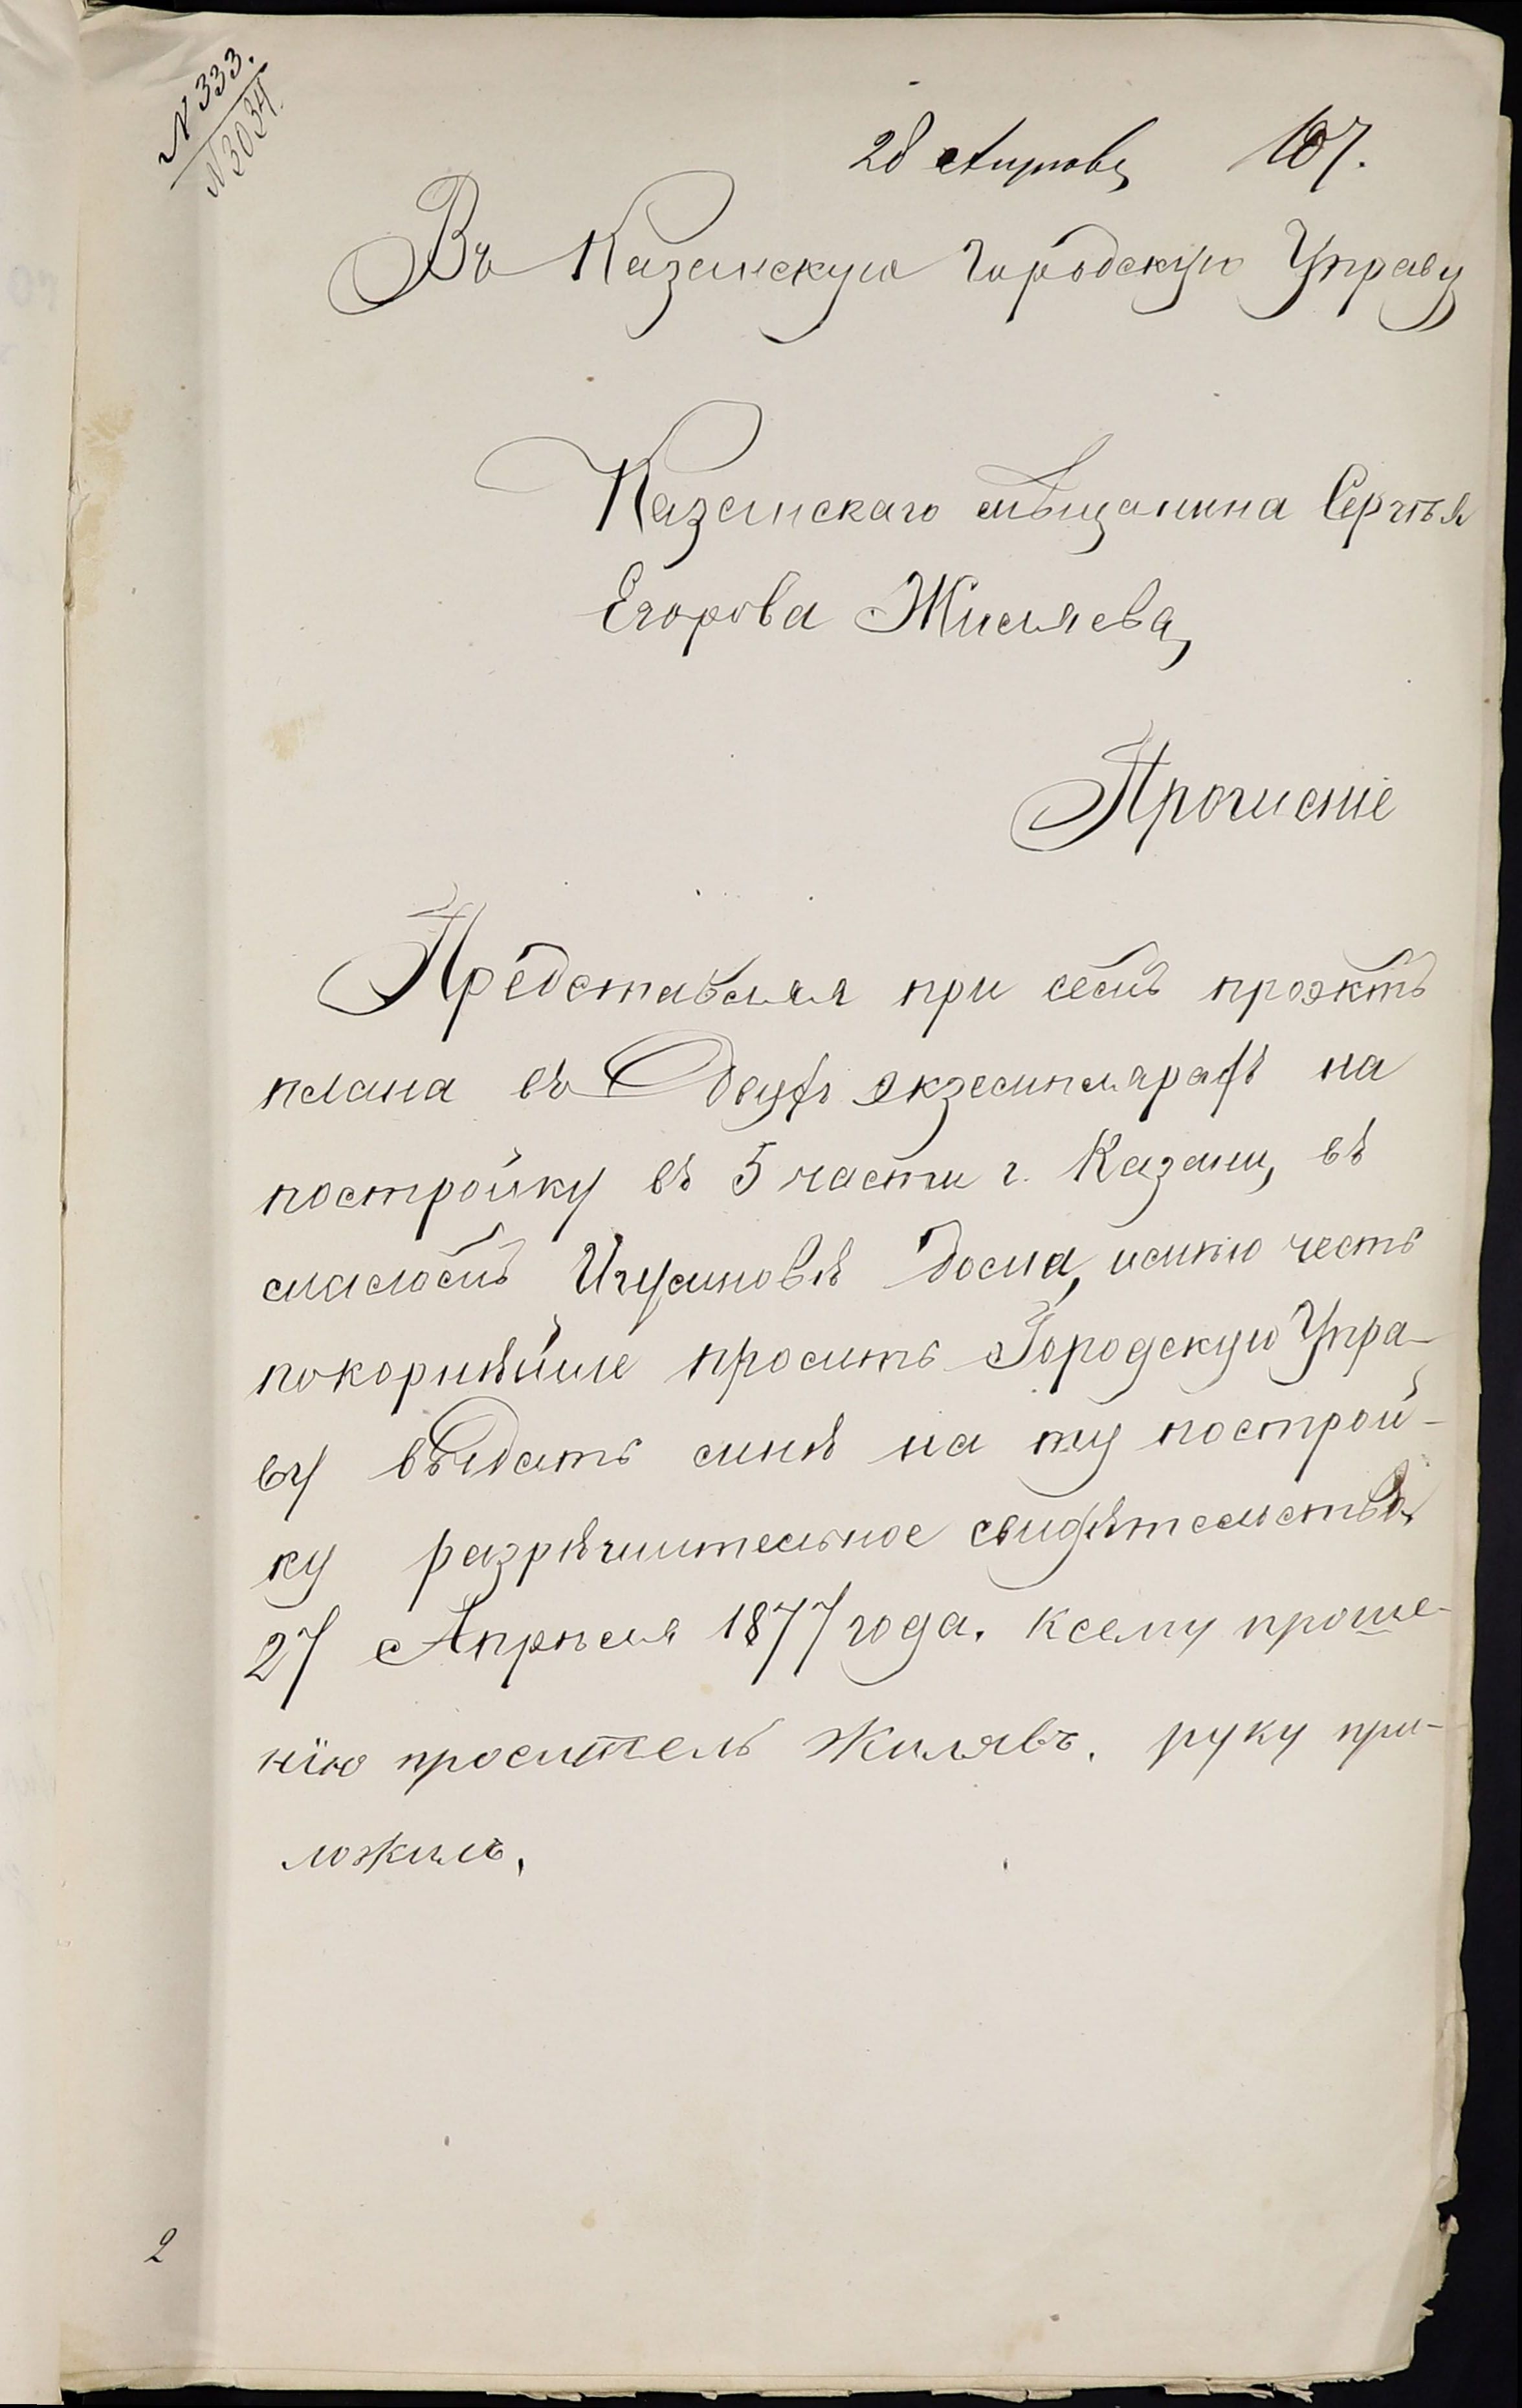 N 333.
N 3034.
28 Апрѣля 187.
Въ Казанскую Городскую Управу
Казанскаго мѣщанина Сергѣя
Егорова Жиляева,
Прошеніе
Представляя при семъ проэктъ
плана въ двухъ экземплярахъ на
постройку въ 5 части г. Казани, въ
слободѣ Игумновѣ дома, имѣю честь
покорнѣйше просить Городскую Упра-
ву выдать мнѣ на ту построй-
ку разрѣшительное свидѣтельство.
27 Апрѣля 1877 года. Ксему проше-
нію проситель Жилявъ. руку при-
ложилъ.
2